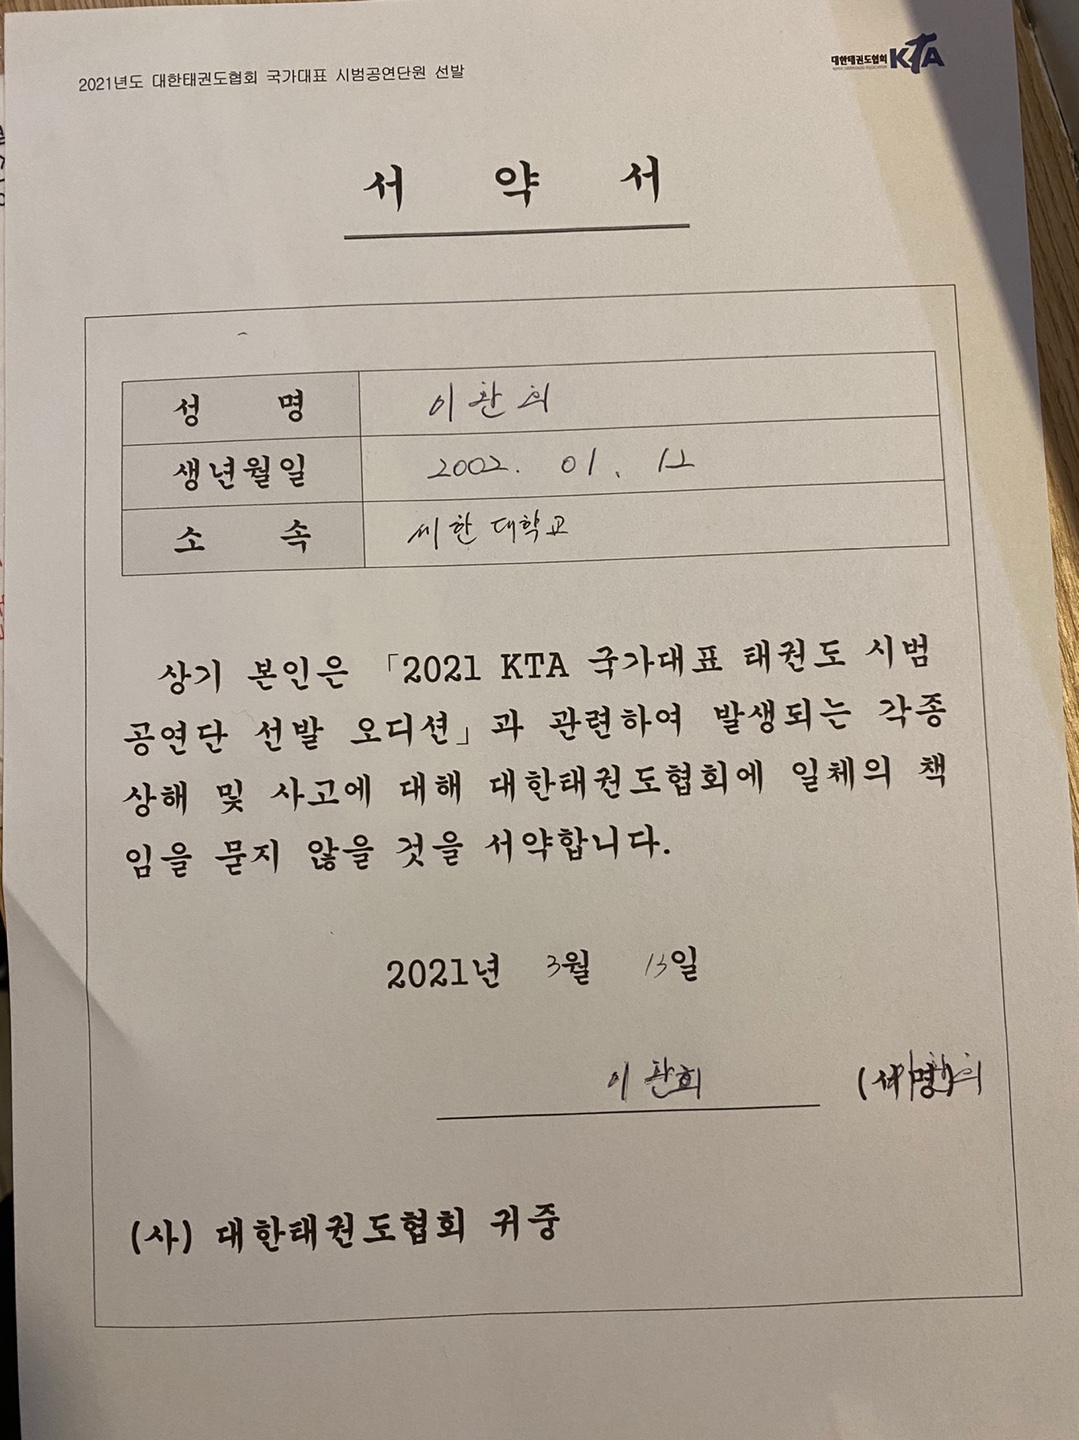 2021년도 대한태권도협회 국가대표 시범공연단원 선발
대한태권도협회 KTA
서 약 서
성 명 이환희
생년월일 2002. 01. 12
소 속 세한대학교
상기 본인은 「2021 KTA 국가대표 태권도 시범
공연단 선발 오디션」과 관련하여 발생되는 각종
상해 및 사고에 대해 대한태권도협회에 일체의 책
임을 묻지 않을 것을 서약합니다.
2021년 3월 13일
이환희 (서명)
(사) 대한태권도협회 귀중